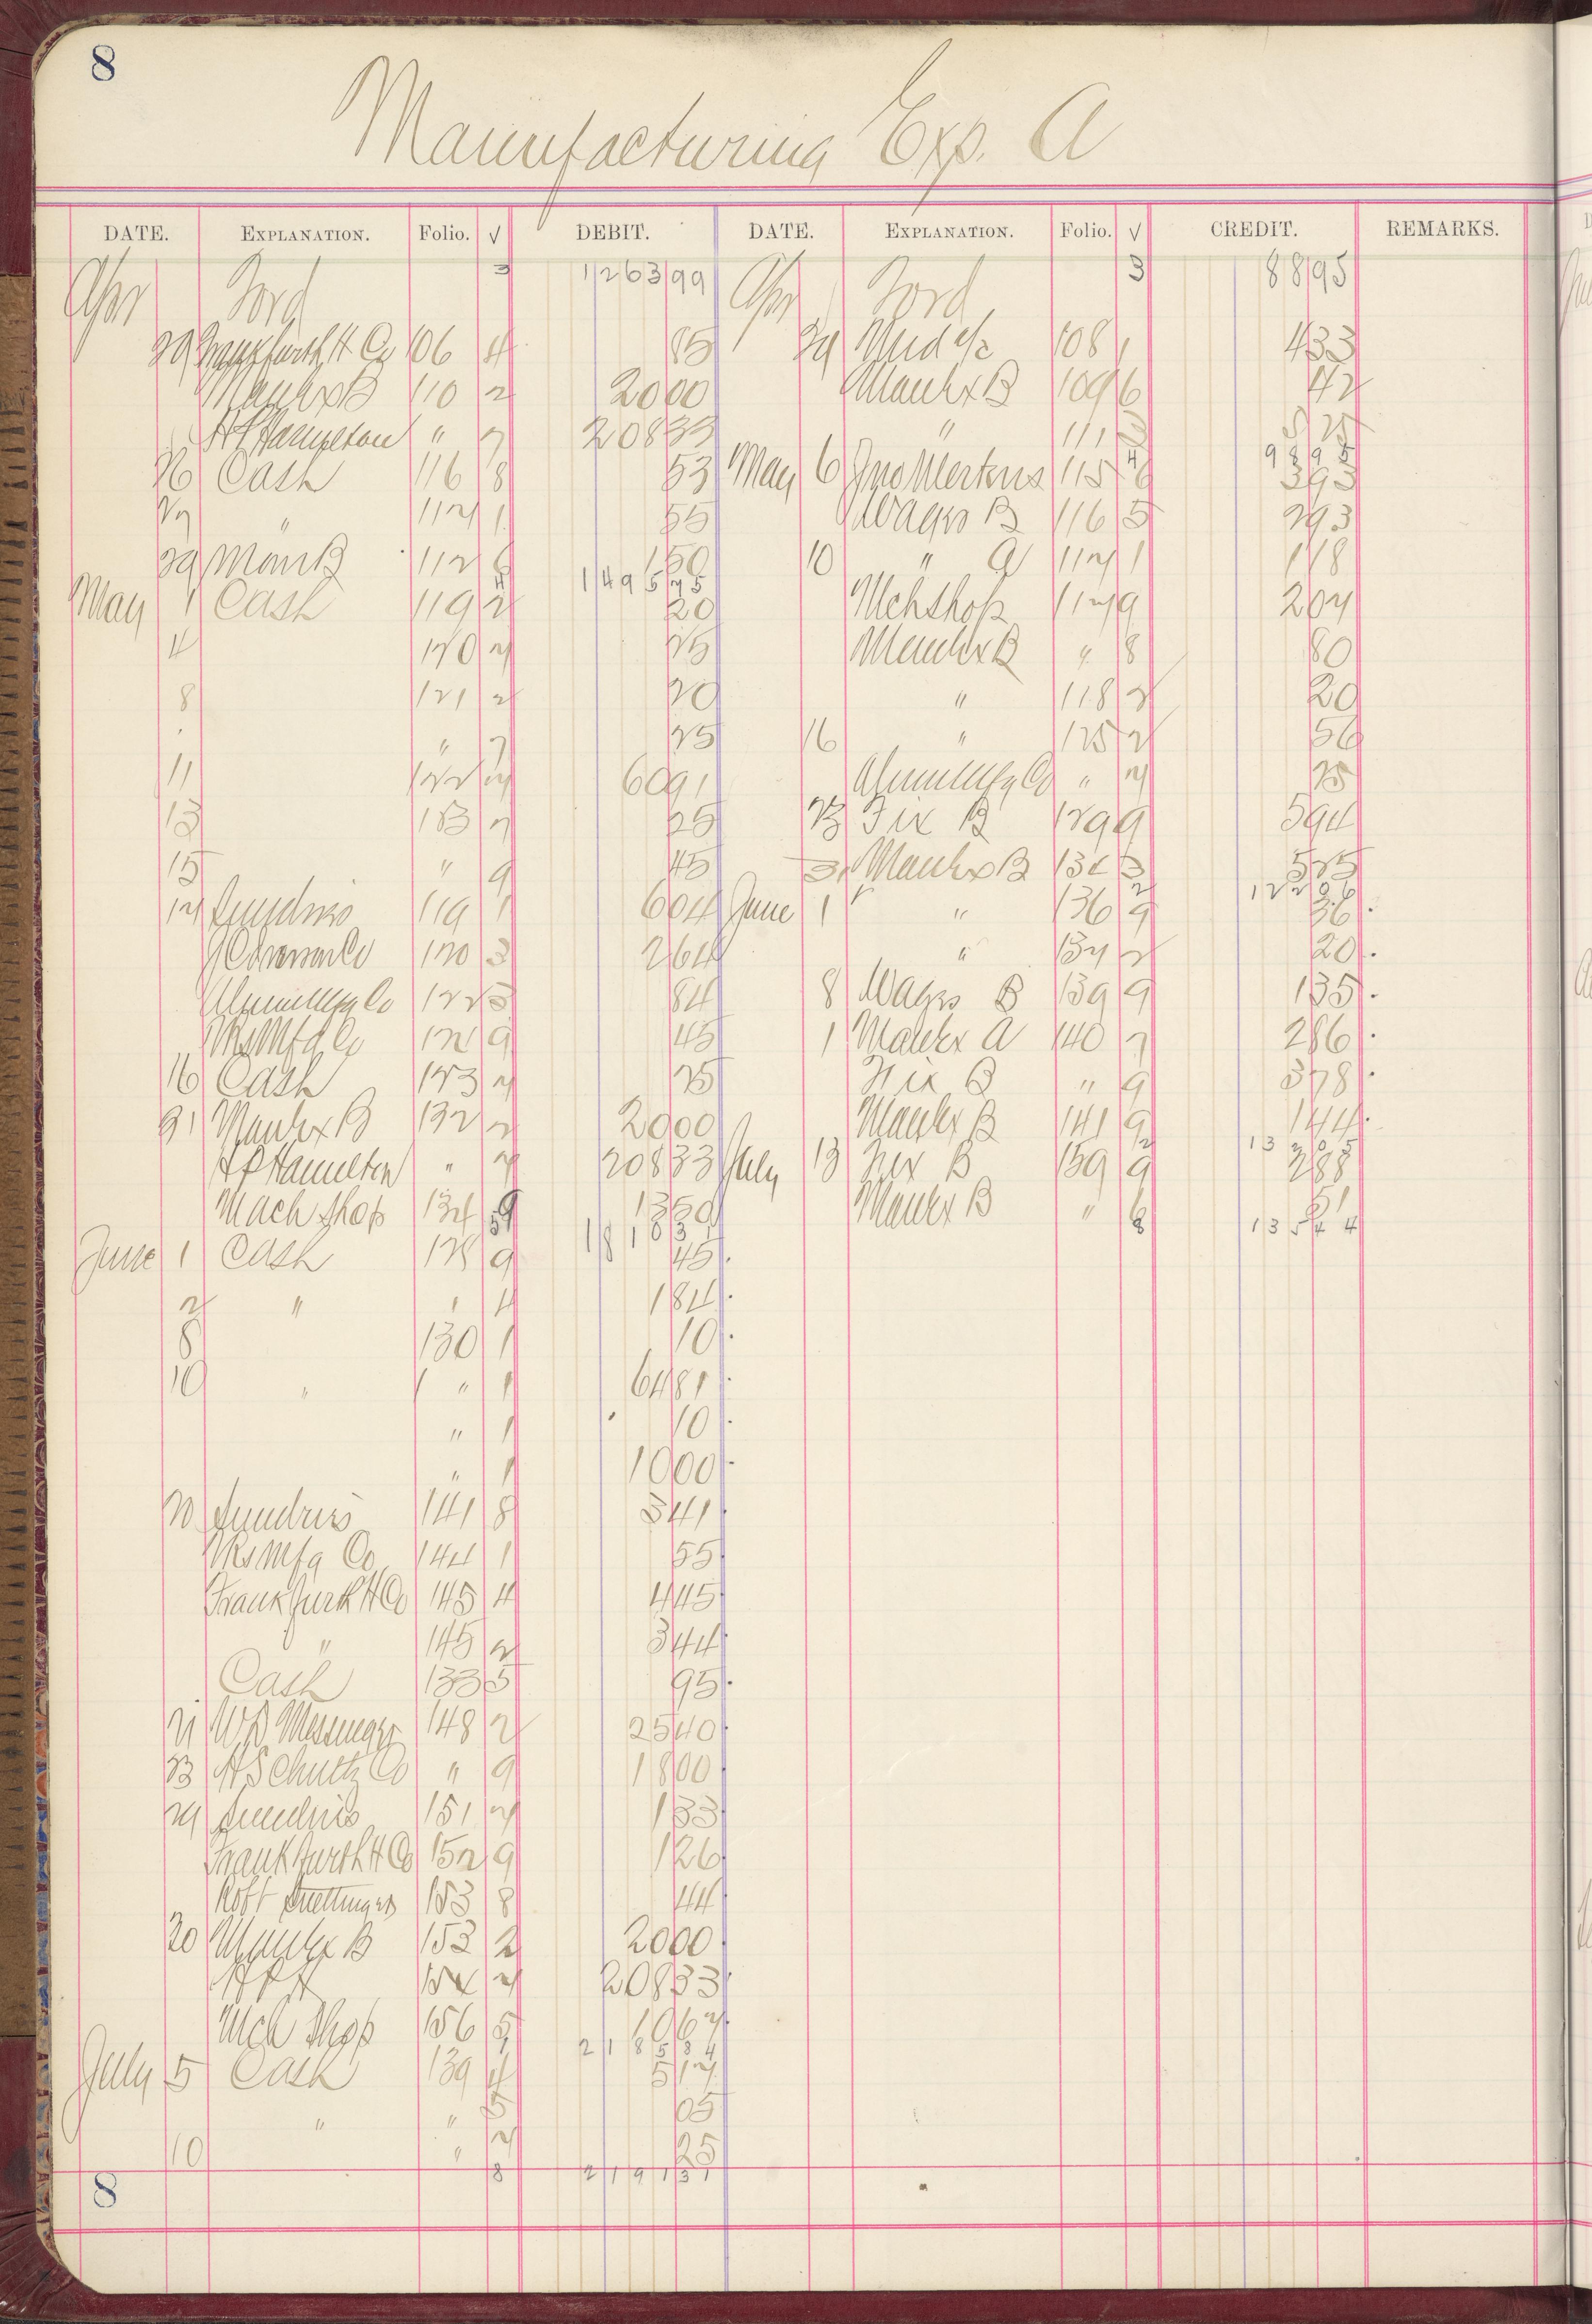 8
Manufacturing Exp. A
DATE. EXPLANATION. Folio. √ DEBIT. DATE. EXPLANATION. Folio. √ CREDIT. REMARKS.
Apr Ford 3 1263 99 Apr Ford 3 88 95
29 Frankfurth H Co 106 4 85 29 Mdse 108 1 4 33
Manfex B 110 2 20 00 Manfex B 109 6 42
H P Hamilton " 7 208 33 " 111
26 Cash 116 8 53 May 6 Jno Mertens 115 6 3 93
27 " 117 1 55 Wages B 116 5 2 93
29 Man B 112 6 1 50 10 " A 117 1 1 18
1495 75
May 1 Cash 119 2 20 Mch Shop 117 9 2 07
4 120 2 25 Manfex B " 8 80
8 121 2 20 " 118 2 20
" 7 25 16 " 125 2 56
11 122 7 60 91 Co " 7 25
13 123 7 25 23 Fix B 129 9 5 94
15 " 9 45 31 Manfex B 134 3 5 25
17 Sundries 119 1 6 04 June 1 " 136 9 36
Co 120 3 2 64 " 137 2 20
Co 122 3 84 8 Wages B 139 9 1 35
Mfg Co 121 9 45 1 Manfex A 140 7 2 86
16 Cash 123 7 25 Fix B " 9 3 78
31 Manfex B 132 2 20 00 Manfex B 141 9 1 44
H P Hamilton " 7 208 33 July 13 Fix B 159 9 2 88
Mach Shop 134 9 13 50 Manfex B " 6 51
135 44
June 1 Cash 128 9 45
2 " " 4 1 84
8 130 1 10
10 " " 1 64 81
" 1 10
" 1 10 00
20 Sundries 141 8 3 41
Mfg Co 144 1 55
Frankfurth H Co 145 4 4 45
" 145 2 3 44
Cash 133 5 95
21 W D Messinger 148 2 25 40
23 H Schultz Co " 9 18 00
29 Sundries 151 7 1 33
Frankfurth H Co 152 9 1 26
Robt 153 8 44
30 Manfex B 153 2 20 00
H P H 154 7 208 33
Mch Shop 156 5 10 67
2185 84
July 5 Cash 139 4 5 17
" " 5 05
10 " 7 25
8 2191 31
8